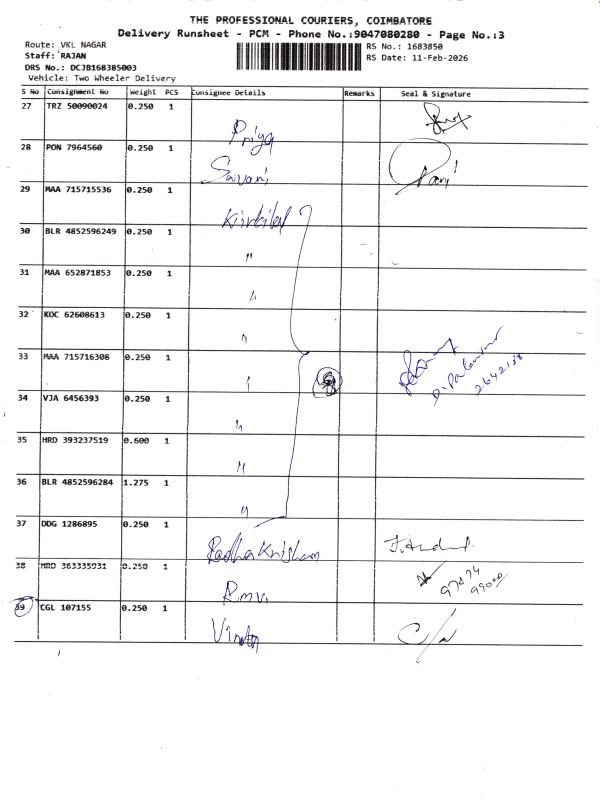 THE PROFESSIONAL COURIERS, COIMBATORE
Delivery Runsheet - PCM - Phone No.:9047080280 - Page No.:3
Route: VKL NAGAR
RS No.: 1683850
Staff: RAJAN
RS Date: 11-Feb-2026
DRS No.: DCJB168385003
Vehicle: Two Wheeler Delivery
S No Consignment No Weight PCS Consignee Details Remarks Seal & Signature
27 TRZ 50090024 0.250 1
Priya
28 PON 7964560 0.250 1
29 MAA 715715536 0.250 1
30 BLR 4852596249 0.250 1
"
31 MAA 652871853 0.250 1
"
32 KOC 62608613 0.250 1
"
33 MAA 715716308 0.250 1
"
34 VJA 6456393 0.250 1
"
35 HRD 393237519 0.600 1
"
36 BLR 4852596284 1.275 1
"
37 DDG 1286895 0.250 1
Radha Krishnan
38 HRD 363335931 0.250 1
39 CGL 107155 0.250 1